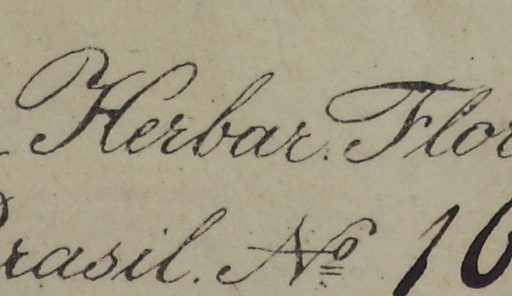 Herbar. Flor
Brasil. No 10